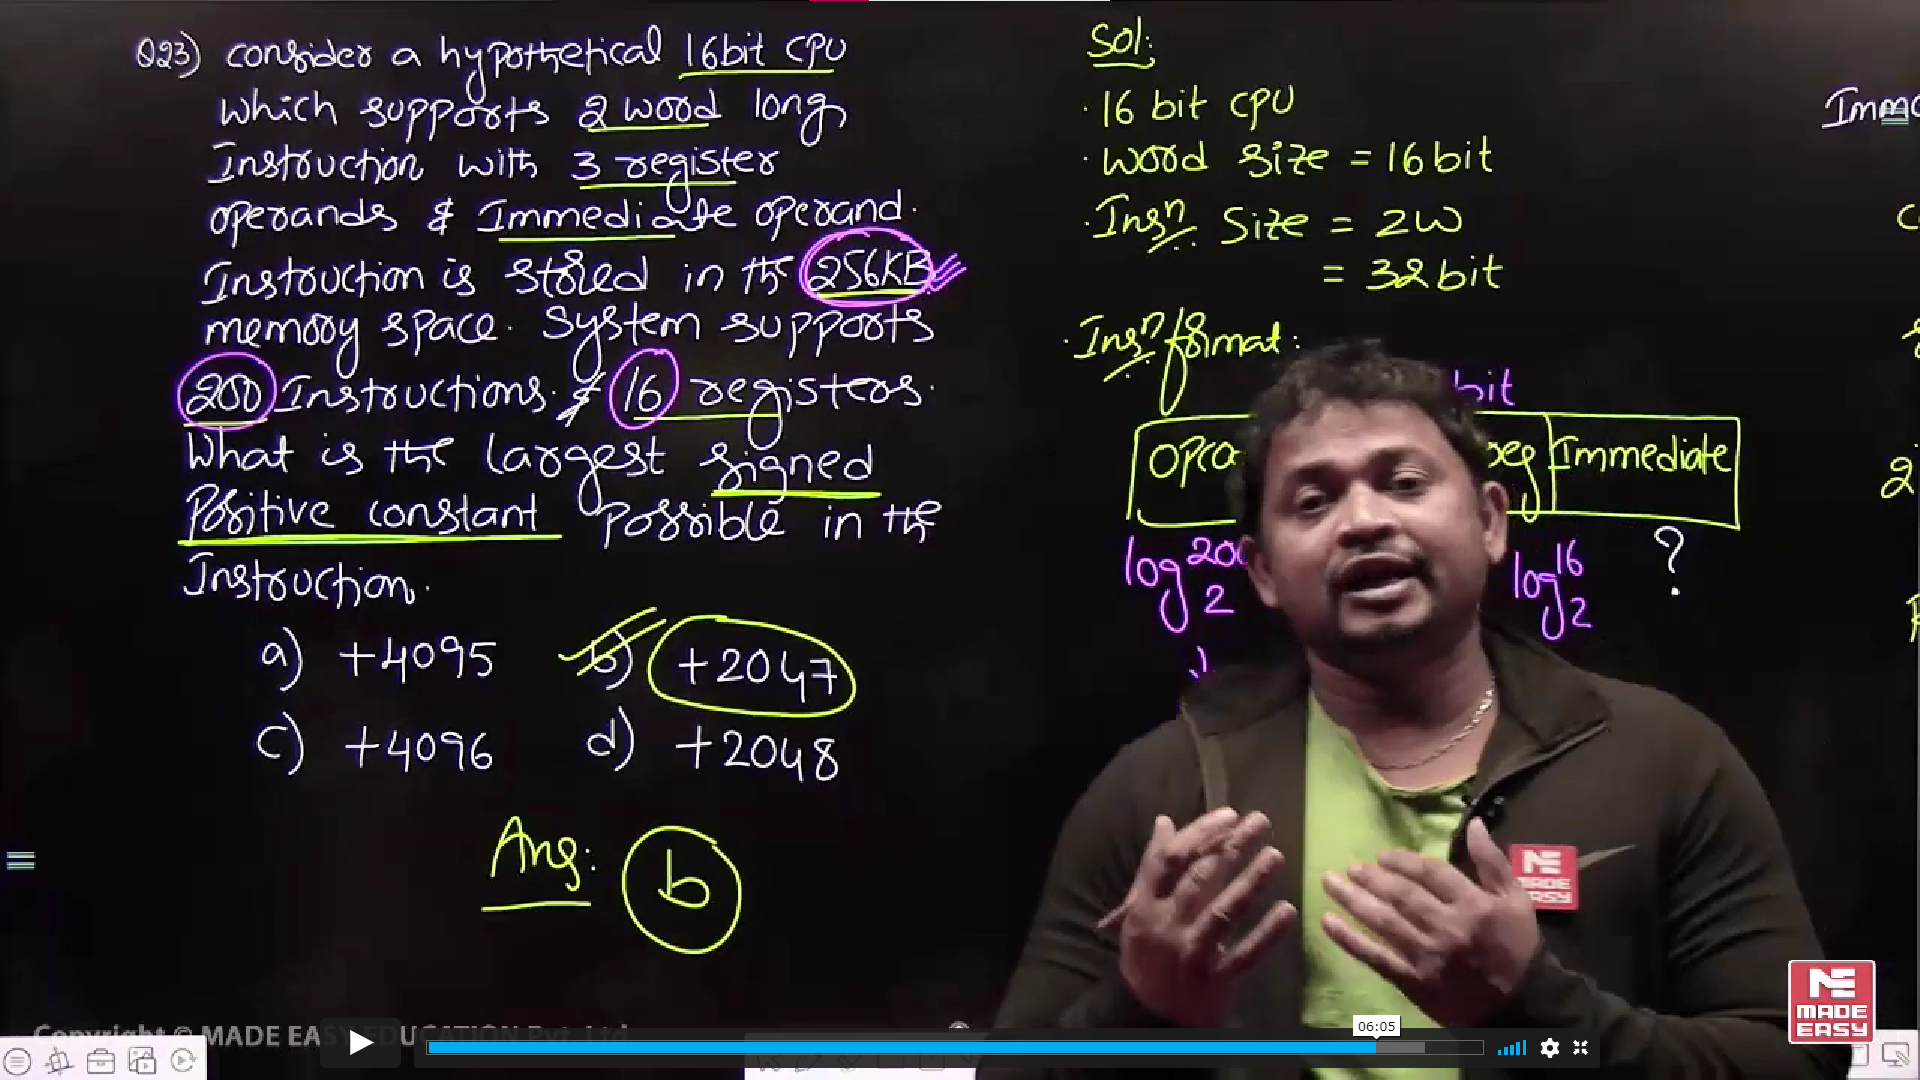 Q23) consider a hypothetical 16bit CPU
which supports 2 word long
Instruction with 3 register
operands & Immediate operand.
Instruction is stored in the 256KB
memory space. System supports
200 Instructions & 16 registers.
What is the largest signed
Positive constant possible in the
Instruction.
a) +4095 b) +2047
c) +4096 d) +2048
Ans: b
Sol:
· 16 bit CPU
· word size = 16 bit
· Insn Size = 2W
= 32 bit
· Insn format:
bit
Opco
Immediate
log 200 2
log 16 2
?
Imm
2
MADE EASY
MADE EASY
Copyright © MADE EASY EDUCATION Pvt. Ltd
06:05